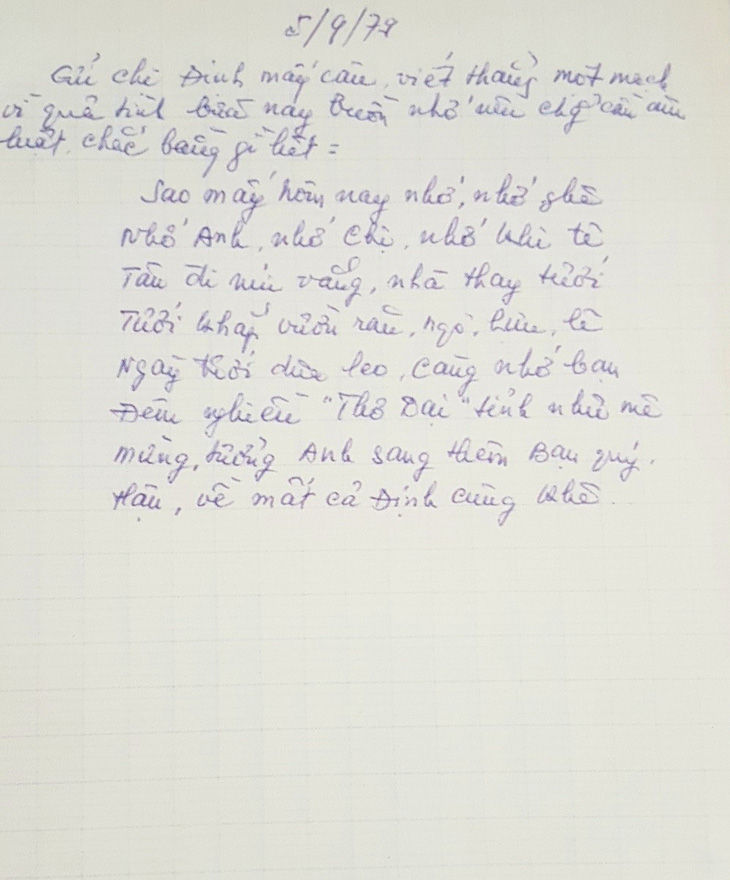 5/9/79
Gửi chị Định mấy câu, viết thẳng một mạch
vì quả tình bữa nay buồn nhớ nên chg̉ cần âm
luật, chắc bằng gì hết =
Sao mấy hôm nay nhớ, nhớ ghê
Nhớ Anh, nhớ chị, nhớ khi tê
Tần đi núi vắng, nhà thay tưới
Tưới khắp vườn rau, ngò, hùn, lê
Ngày tưới dưa leo, càng nhớ bạn
Đêm nghiền "Thơ Dại" tỉnh như mê
mừng, tưởng Anh sang thêm Bạn quý.
Hận, về mất cả Định cùng Khê.